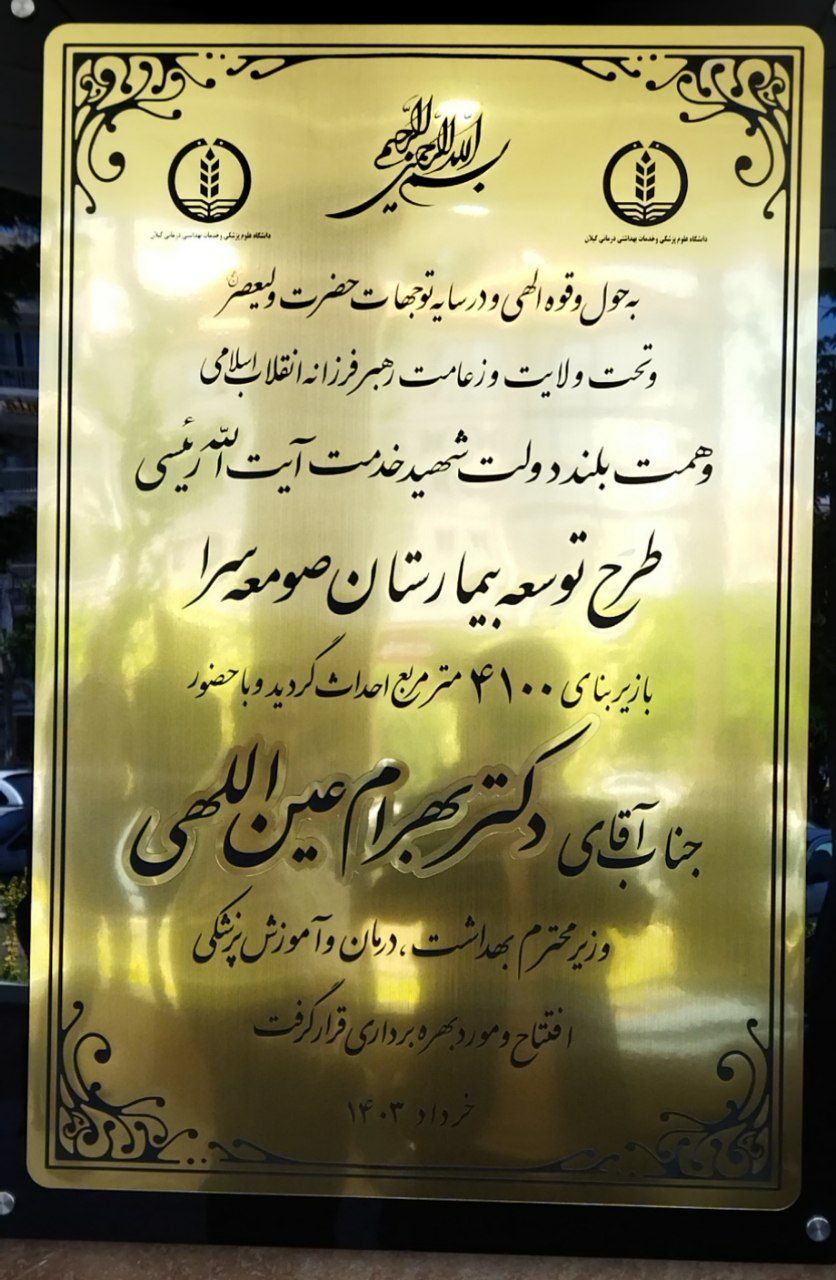 بسم الله الرحمن الرحیم
دانشگاه علوم پزشکی و خدمات بهداشتی درمانی گیلان
دانشگاه علوم پزشکی و خدمات بهداشتی درمانی گیلان
به حول و قوه الهی و در سایه توجهات حضرت ولیعصر
و تحت ولایت و زعامت رهبر فرزانه انقلاب اسلامی
و همت بلند دولت شهید خدمت آیت الله رئیسی
طرح توسعه بیمارستان صومعه سرا
با زیربنای ۴۱۰۰ متر مربع احداث گردید و با حضور
جناب آقای دکتر بهرام عین اللهی
وزیر محترم بهداشت، درمان و آموزش پزشکی
افتتاح و مورد بهره برداری قرار گرفت
خرداد ۱۴۰۳